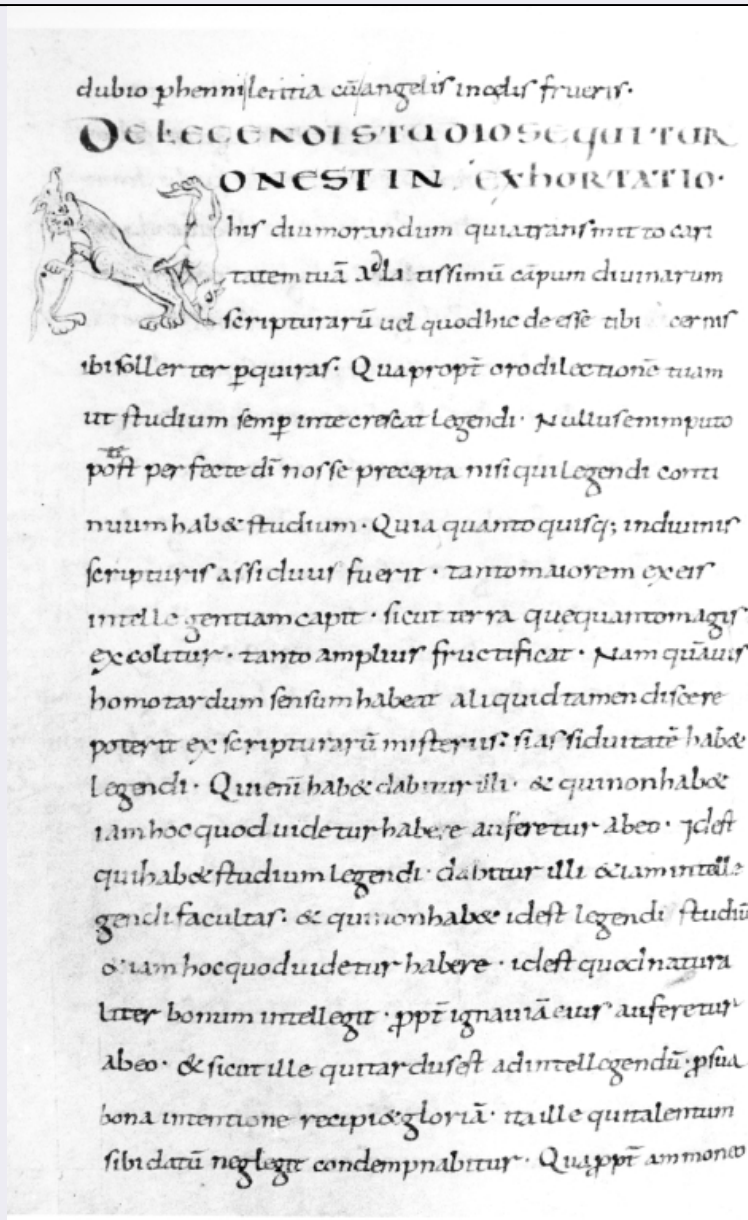 dubio ꝑhenni letitia cū angelis in cęlis frueris·
DE LEGENDI STUDIO SEQUITUR
ONEST IN EXHORTATIO·
his diu morandum quia transmitto cari
tatem tuā ad latissimū cāpum diuinarum
scripturarū uel quod hic de esse tibi cernis
ibi sollerter ꝑquiras· Quapropt̄ oro dilectionē tuam
ut studium semꝑ in te crescat legendi· Nullus enim puto
potest perfecte dī nosse precepta nisi qui legendi conti
nuum hab& studium· Quia quanto quisq; in diuinis
scripturis assiduus fuerit· tanto maiorem ex eis
intellegentiam capit· sicut terra que quanto magis
excolitur· tanto amplius fructificat· Nam quāuis
homo tardum sensum habeat aliquid tamen discere
poterit ex scripturarū misteriis· si assiduitatē hab&
legendi· Qui enī hab& dabitur illi· & qui non hab&
iam hoc quod uidetur habere auferetur ab eo· Idest
qui hab& studium legendi· dabitur illi &iam intelle
gendi facultas· & qui non hab& idest legendi studiū
&iam hoc quod uidetur habere· idest quod natura
liter bonum intellegit· ꝓpt̄ ignauiā eius auferetur
ab eo· & sicut ille qui tardus est ad intellegendū· ꝓ sua
bona intentione recipi& gloriā· ita ille qui talentum
sibi datū neglegit condempnabitur· Quaꝓpt̄ ammoneo